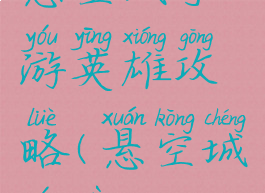 yóu yīng xióng gōng
游英雄攻
lüè xuán kōng chéng
略(悬空城